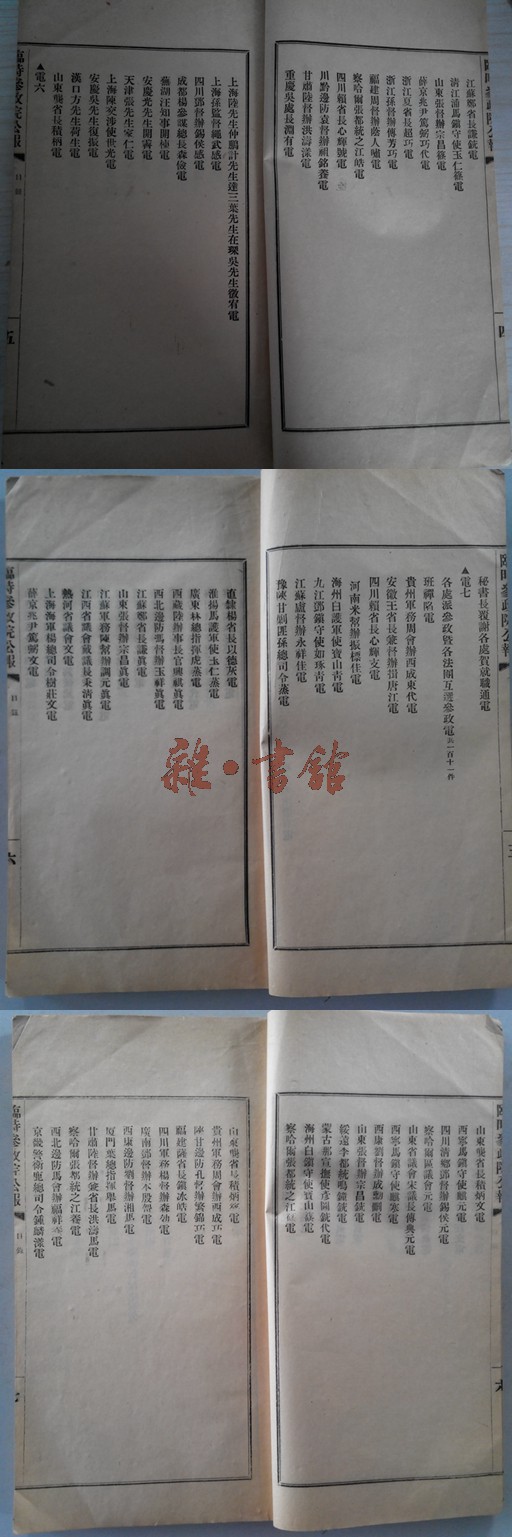 臨時參政院公報
四
江蘇鄭省長謙銑電
清江浦馬鎮守使玉仁篠電
山東張督辦宗昌篠電
薛京兆尹篤弼巧代電
浙江夏省長超巧電
浙江孫督辦傳芳巧電
福建周督辦蔭人嘯電
察哈爾張都統之江皓電
四川賴省長心輝號電
川黔邊防袁督辦祖銘養電
甘肅陸督辦洪濤漾電
重慶吳處長淵有電
上海陸先生仲鵬計先生達三葉先生在琛吳先生徵宥電
上海孫監督繩武感電
四川鄧督辦錫侯感電
成都楊參謀總長森儉電
蕪湖汪知事開棟電
安慶光先生開霽電
天津張先生家仁電
上海陳交涉使世光電
安慶吳先生復振電
漢口方先生荷生電
山東龔省長積柄電
▲電六
臨時參政院公報
目錄
五
臨時參政院公報
秘書長覆謝各處賀就職通電
▲電七
各處派參政暨各法團互選參政電共一百十一件
班禪陷電
貴州軍務周會辦西成東代電
安徽王省長兼督辦揖唐江電
四川賴省長心輝支電
河南米幫辦振標佳電
海州白護軍使寶山青電
九江鄧鎮守使如琢青電
江蘇盧督辦永祥佳電
豫陝甘剿匪孫總司令蒸電
直隸楊省長以德灰電
淮揚馬護軍使玉仁蒸電
廣東林總指揮虎蒸電
西藏陸辦事長官興祺眞電
西北邊防馮督辦玉祥眞電
江蘇鄭省長謙眞電
山東張督辦宗昌眞電
江蘇軍務陳幫辦調元眞電
江西省議會戴議長秉清眞電
熱河省議會文電
上海海軍楊總司令樹莊文電
薛京兆尹篤弼文電
臨時參政院公報
目錄
六
臨時參政院公報
山東龔省長積柄文電
西寧馬鎮守使麒元電
四川清鄉鄧督辦錫侯元電
察哈爾區議會元電
山東省議會宋議長傳典元電
西寧馬鎮守使麒寒電
西康劉督辦成勳刪電
山東張督辦宗昌銑電
綏遠李都統鳴鐘銑電
蒙古那宣撫使彥圖銑代電
海州白鎮守使寶山篠電
察哈爾張都統之江電
山東龔省長積柄電
貴州軍務周會辦西成巧電
陝甘邊防孔督辦繁錦巧電
福建薩省長鎮冰皓電
四川軍務楊督辦森効電
廣南鄧督辦本殷號電
西康邊防劉督辦湘馬電
廈門葉總指揮舉馬電
甘肅陸督辦兼省長洪濤馬電
察哈爾張都統之江養電
西北邊防馬會辦福祥電
京畿警衛鹿總司令鍾麟漾電
臨時參政院公報
目錄